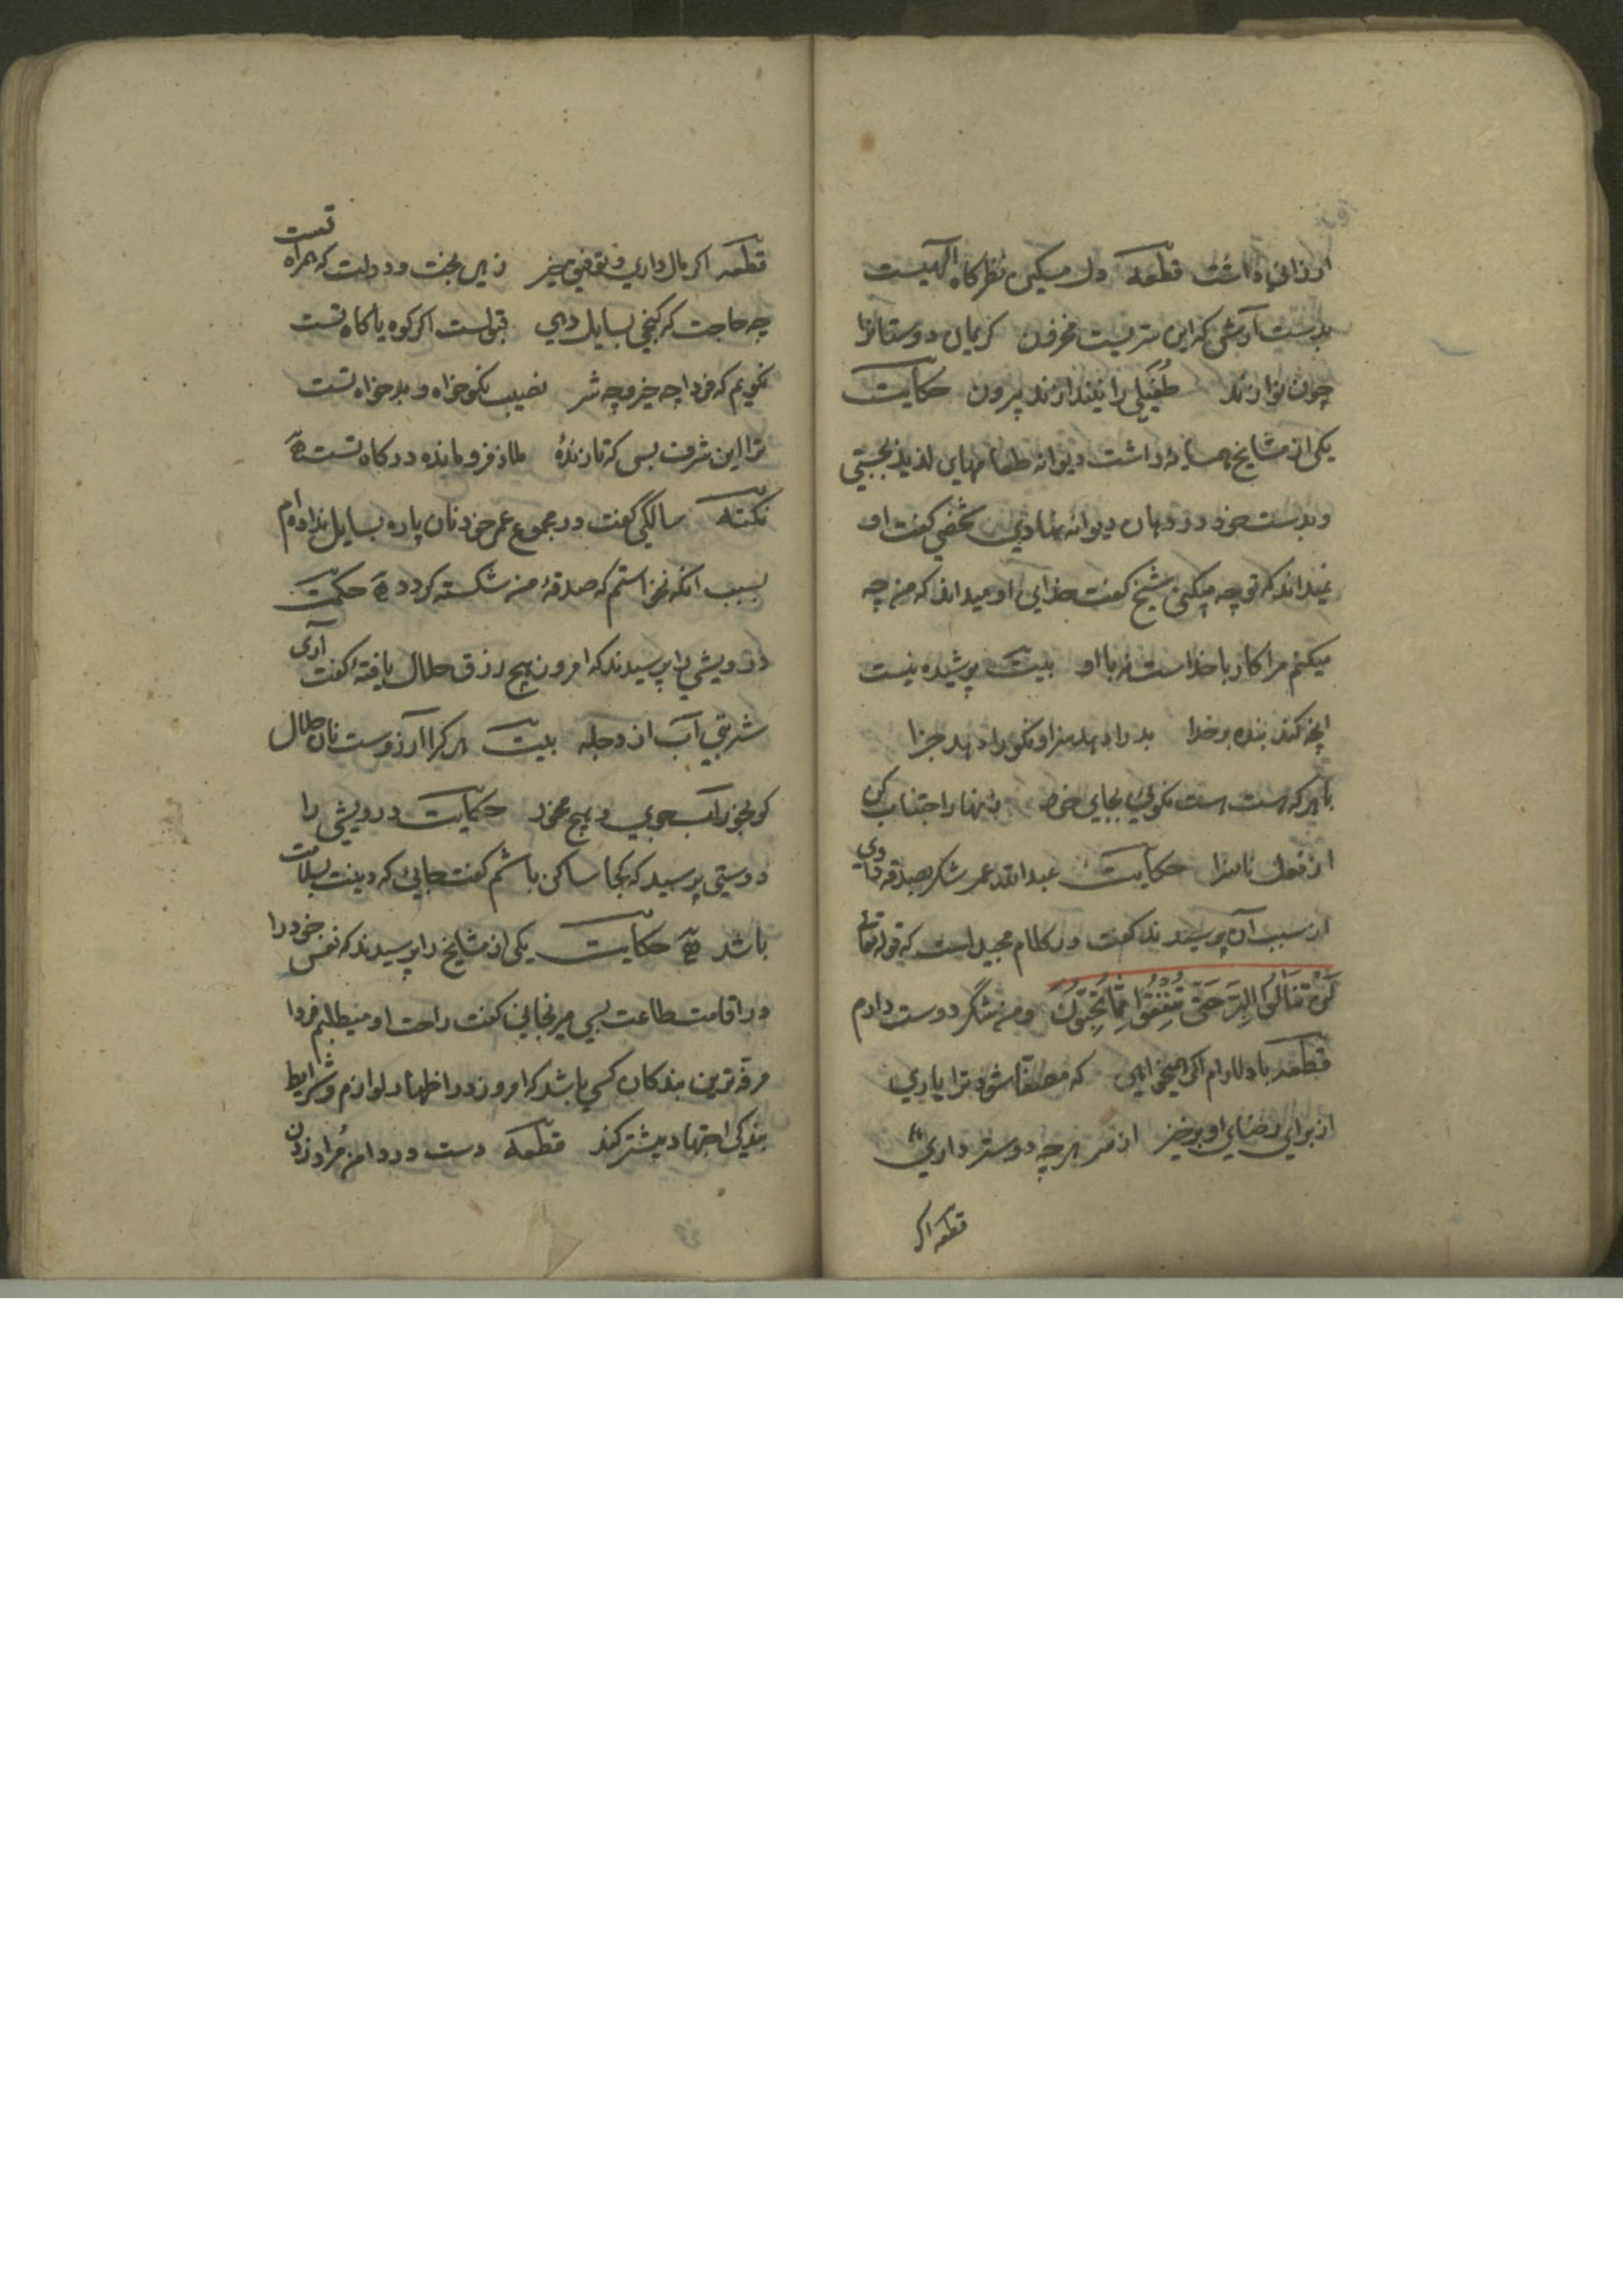 ارزانی داشت قطعه دل مسکین نظرکاه الهیست
بدست آوش که این سریست مخزون کریمان دوستانرا
چون نوازند طُفَیلی را نیندازند بیرون حکایت
یکی از مشایخ همسایهٔ داشت دیوانه طعامهای لذیذ بجستی
و بدست خود در دهان دیوانه نهادی شخصی کفت او
نمیداند که تو چه میکنی شیخ کفت خدای او میداند که من چه
میکنم مرا کار با خداست نه با او بیت پوشیده نیست
انچه کند بنده بر خدا بد را دهد سزا و نکو را دهد جزا
با هر که هست هست نکوئی بجای خود زینهار اجتناب کن
از فعل ناسزا حکایت عبدالله عمر شکر بصدقه دادی
از سبب آن پرسیدند کفت در کلام مجید است که قوله تعالی
لَنْ تَنَالُوا الْبِرَّ حَتَّى تُنْفِقُوا مِمَّا تُحِبُّونَ و من شکر دوست دارم
قطعه با دلارام اکر همیخواهی که مصفا شود ترا یاری
از برای رضای او برخیز از سر هر چه دوستر داری
قطعه اکر
قطعه اکر مال داری و توفیق خیر زهی بخت و دولت که همراه تست
چه حاجت که کنجی بسایل دهی قبولست اکر کوه یا کاه تست
نکویم که فردا چه خیر و چه شر نصیب نکوخواه و بدخواه تست
ترا این شرف بس که تا زندهٔ ملاذ فرومانده درکاه تست
نکته سالکی کفت در مجموع عمر خود نان پاره بسایل نداده‌ام
بسبب انکه نخواستم که صدقهٔ من شکسته کردد حکمت
درویشی را پرسیدند که امروز هیچ رزق حلال یافتهٔ کفت آری
شربتی آب از دجله بیت هر کرا آرزوست نان حلال
کو بخور آب جوی و هیچ مخور حکایت درویشی را
دوستی پرسید که کجا ساکن باشم کفت جایی که دینت بسلامت
باشد حکایت یکی از مشایخ را پرسیدند که نفس خود را
در اقامت طاعت بسی میرنجانی کفت راحت او میطلبم فردا
مرفه‌ترین بندکان کسی باشد که امروز در اظهار لوازم و شرایط
بندکی اجتهاد بیشتر کند قطعه دست در دامن مراد زدن